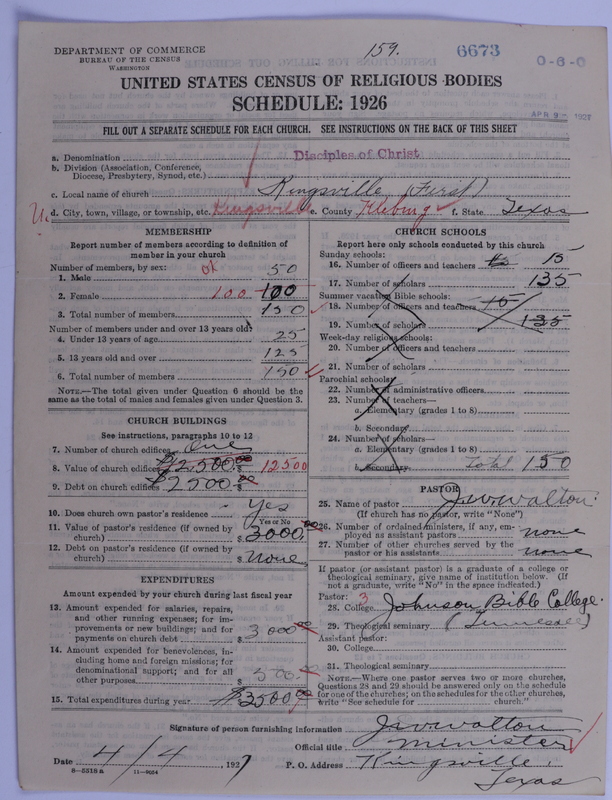 DEPARTMENT OF COMMERCE
BUREAU OF THE CENSUS
WASHINGTON
159.
6673
0-6-0
UNITED STATES CENSUS OF RELIGIOUS BODIES
SCHEDULE: 1926
APR 9 1927
FILL OUT A SEPARATE SCHEDULE FOR EACH CHURCH. SEE INSTRUCTIONS ON THE BACK OF THIS SHEET
a. Denomination Disciples of Christ
b. Division (Association, Conference,
Diocese, Presbytery, Synod, etc.)
c. Local name of church Kingsville (First)
d. City, town, village, or township, etc. Kingsville e. County Kleburg f. State Texas
MEMBERSHIP
Report number of members according to definition of
member in your church
Number of members, by sex: ok
1. Male 50
2. Female 100 100
3. Total number of members 150
Number of members under and over 13 years old:
4. Under 13 years of age 25
5. 13 years old and over 125
6. Total number of members 150
NOTE.—The total given under Question 6 should be the
same as the total of males and females given under Question 3.
CHURCH BUILDINGS
See instructions, paragraphs 10 to 12
7. Number of church edifices One
8. Value of church edifices $12500.00 $ 12500
9. Debt on church edifices $2500.00
10. Does church own pastor's residence Yes
Yes or No
11. Value of pastor's residence (if owned by
church) $ 3000.00
12. Debt on pastor's residence (if owned by
church) $ None
EXPENDITURES
Amount expended by your church during last fiscal year
13. Amount expended for salaries, repairs,
and other running expenses; for im-
provements or new buildings; and for
payments on church debt $ 3000.00
14. Amount expended for benevolences, in-
cluding home and foreign missions; for
denominational support; and for all
other purposes $ 500.00
15. Total expenditures during year $3500.00
CHURCH SCHOOLS
Report here only schools conducted by this church
Sunday schools:
16. Number of officers and teachers 15 15
17. Number of scholars 135
Summer vacation Bible schools:
18. Number of officers and teachers 15
19. Number of scholars 135
Week-day religious schools:
20. Number of officers and teachers
21. Number of scholars
Parochial schools:
22. Number of administrative officers
23. Number of teachers—
a. Elementary (grades 1 to 8)
b. Secondary
24. Number of scholars—
a. Elementary (grades 1 to 8)
b. Secondary Total 150
PASTOR
25. Name of pastor J.W. Walton
(If church has no pastor, write "None")
26. Number of ordained ministers, if any, em-
ployed as assistant pastors none
27. Number of other churches served by the
pastor or his assistants none
If pastor (or assistant pastor) is a graduate of a college or
theological seminary, give name of institution below. (If
not a graduate, write "No" in the space indicated.)
Pastor: 3
28. College Johnson Bible College.
29. Theological seminary (Tennessee)
Assistant pastor:
30. College
31. Theological seminary
NOTE.—Where one pastor serves two or more churches,
Questions 28 and 29 should be answered only on the schedule
for one of the churches; on the schedules for the other churches,
write "See schedule for church."
Signature of person furnishing information J.W. Walton
Official title Minister
Date 4/4, 1927 P. O. Address Kingsville,
8—5518a 11—9054
Texas